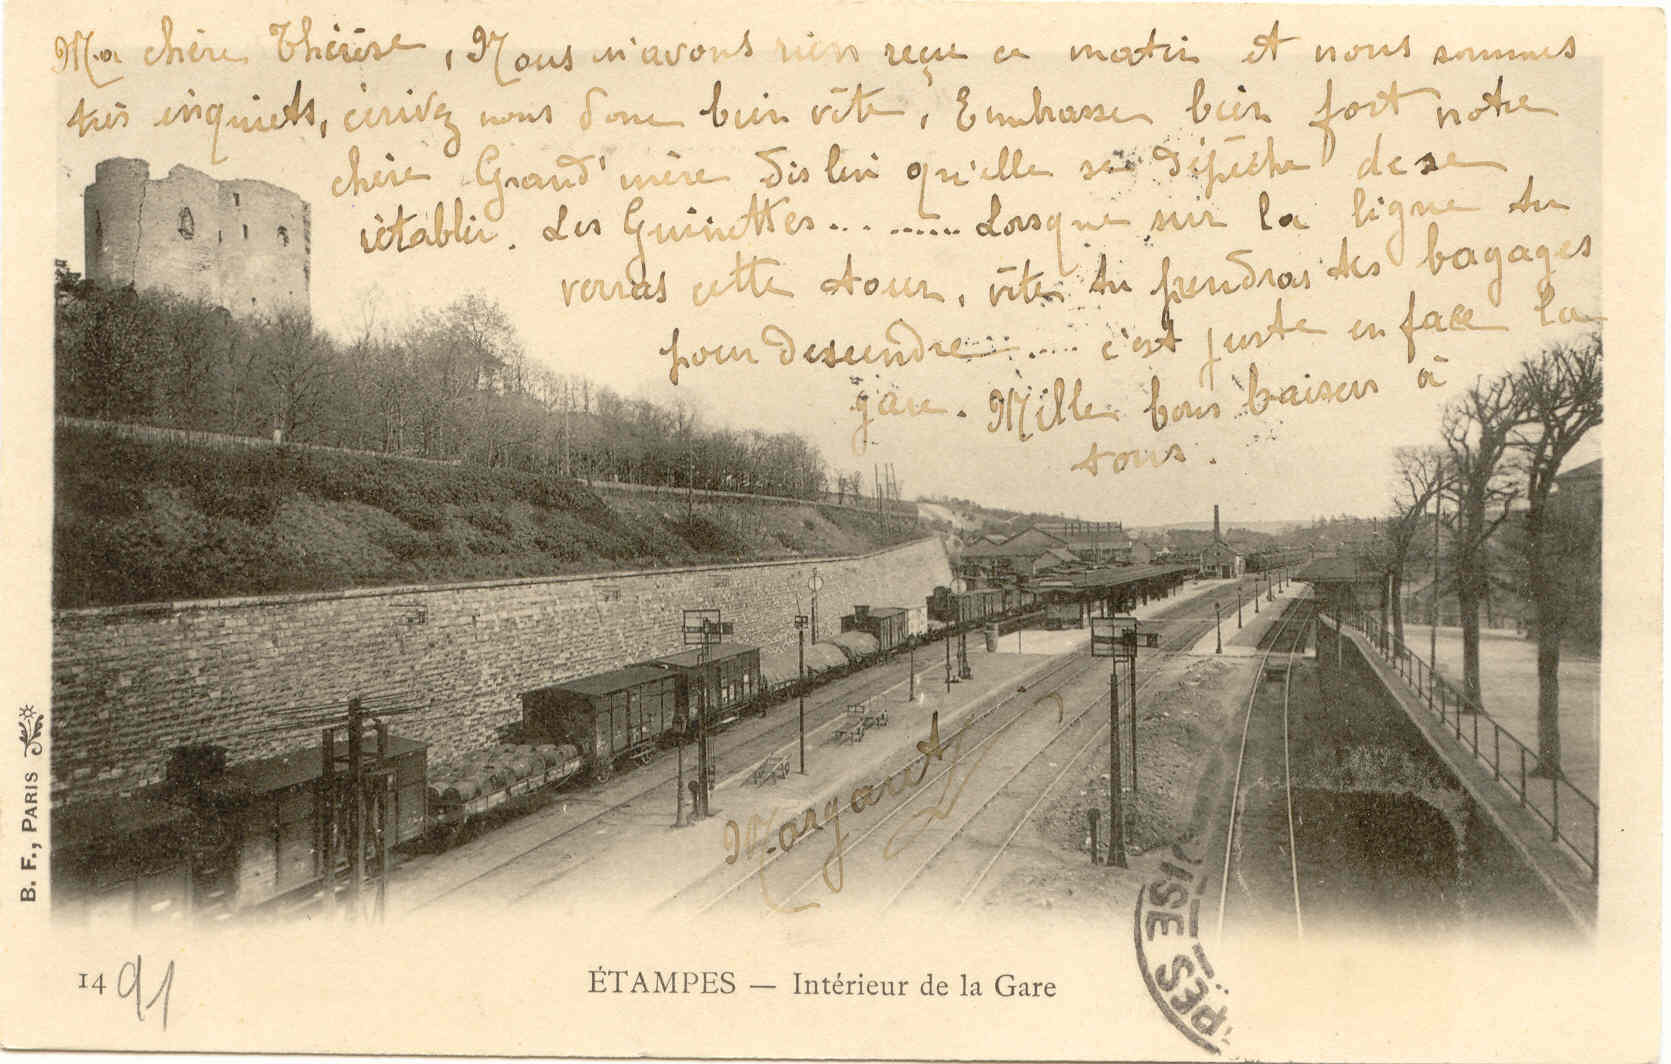 Ma chère Thérèse, Nous n'avons rien reçu ce matin et nous sommes
très inquiets, écrivez nous donc bien vite, Embrasse bien fort notre
chère Grand'mère dis lui qu'elle se dépêche de se
rétablir. Les Guinettes... ...... Lorsque sur la ligne tu
verras cette tour, vite tu prendras tes bagages
pour descendre ....... c'est juste en face la
gare. Mille bons baisers à
tous.
Margaret
B. F., PARIS
14
91
ÉTAMPES — Intérieur de la Gare
PES
OISE